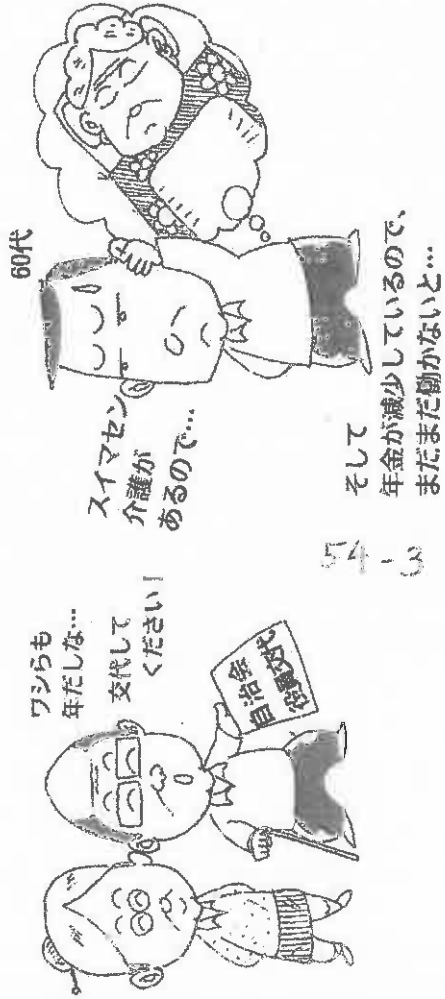 ワシらも
年だしな…
交代して
ください！
自治会
役員交代
60代
スイマセン
介護が
あるので…
そして
年金が減少しているので、
まだまだ働かないと…
54-3